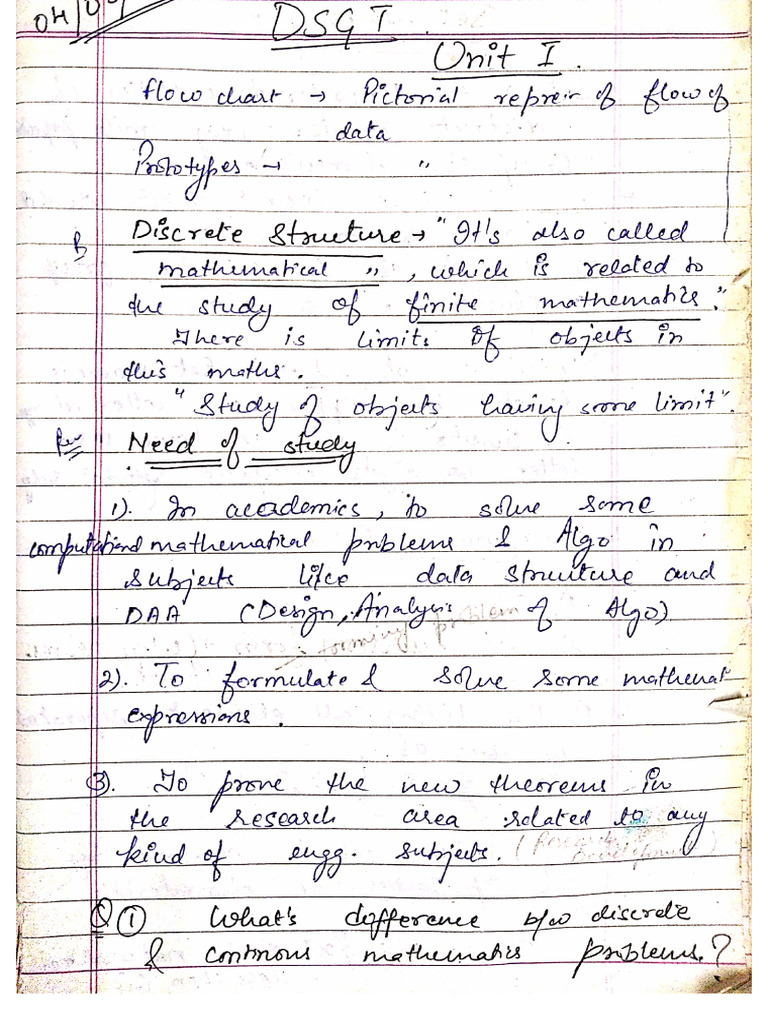 04/09
DSGT
Unit I.
flow chart → Pictorial repren of flow of
data
Prototypes → "
Discrete Structure → "It's also called
mathematical ", which is related to
the study of finite mathematics."
There is limits of objects in
this maths.
"Study of objects having some limit".
Need of study
1). In academics, to solve some
computational mathematical problems & Algo in
subjects like data structure and
DAA (Design, Analysis of Algo)
2). To formulate & solve some mathemat
expressions.
3). To prove the new theorems in
the research area related to any
kind of engg. subjects. (Research
Development)
Q ① What's difference b/w discrete
& continous mathematics problems.?